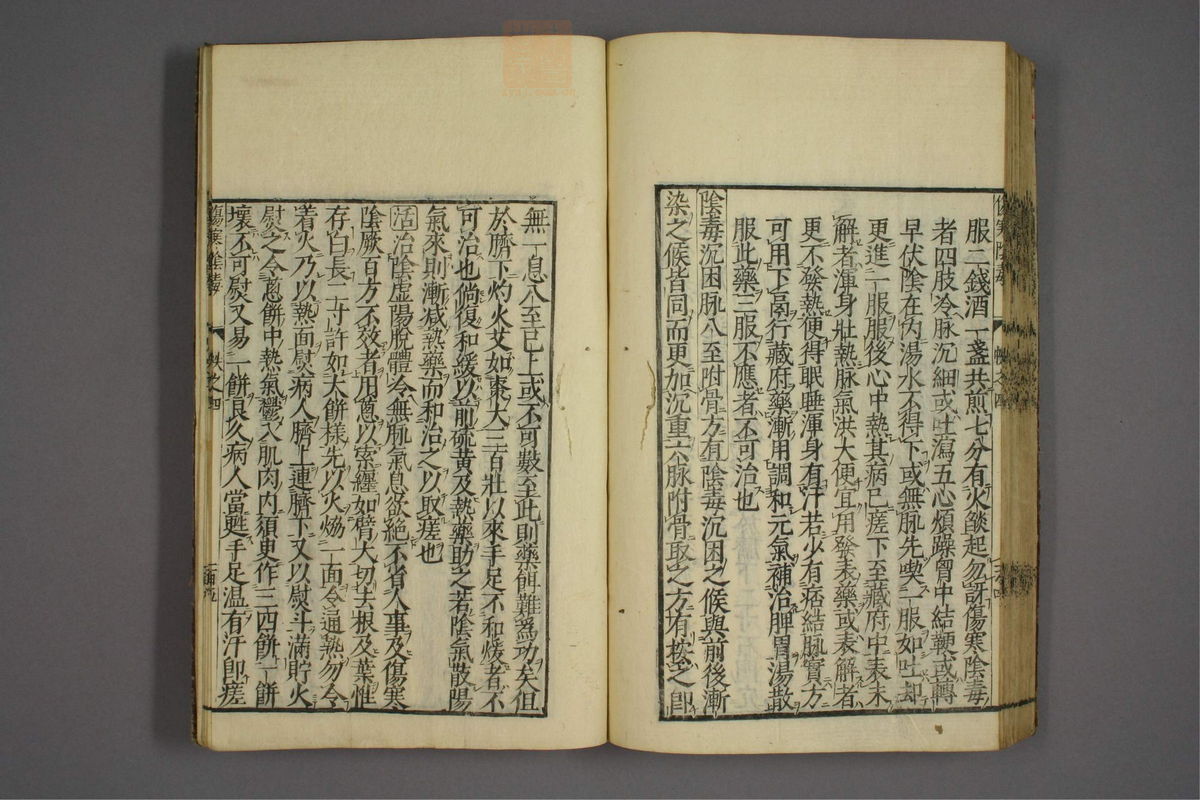 傷寒陰毒　卷之四
服二錢酒一盞共煎七分有火燄起勿訝傷寒陰毒
者四肢冷脉沉細或吐瀉五心煩躁胷中結鞕或轉
早伏陰在內湯水不得下或無脉先喫一服如吐却
更進一服服後心中熱其病已瘥下至藏府中表未
解者渾身壯熱脉氣洪大便宜用發表藥或表解者
更不發熱便得眠睡渾身有汗若少有痞結脉實方
可用下鬲行藏府藥漸用調和元氣補治脾胃湯散
服此藥三服不應者不可治也
陰毒沉困脉八至附骨方有陰毒沉困之候與前後漸
染之候皆同而更加沉重六脉附骨取之方有按之即
無一息八至已上或不可數至此則藥餌難爲功矣但
於臍下灼火艾如棗大三百壯以來手足不和煖者不
可治也倘復和緩以前硫黃及熱藥助之若陰氣散陽
氣來則漸减熱藥而和治之以取瘥也
活治陰虛陽脫體冷無脉氣息欲絕不省人事及傷寒
陰厥百方不效者用蔥以索纏如臂大切去根及葉惟
存白長二寸許如大餅樣先以火煿一面令通熱勿令
着火乃以熱面熨病人臍上連臍下又以熨斗滿貯火
熨之令蔥餅中熱氣鬱入肌肉內須更作三四餅一餅
壞不可熨又易一餅良久病人當甦手足溫有汗即瘥
傷寒陰毒　卷之四